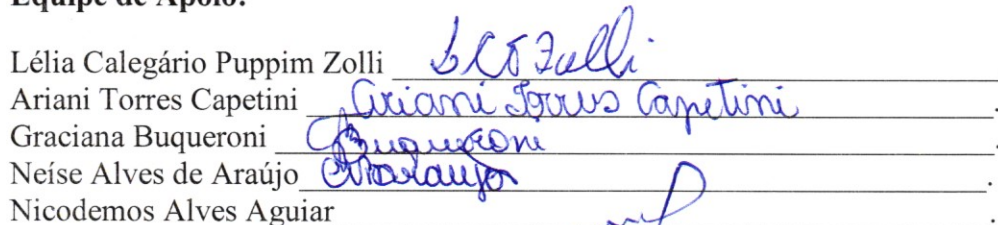 Equipe de Apoio:
Lélia Calegário Puppim Zolli Zolli
Ariani Torres Capetini Ariani Torres Capetini.
Graciana Buqueroni Buqueroni.
Neíse Alves de Araújo Araujo.
Nicodemos Alves Aguiar.